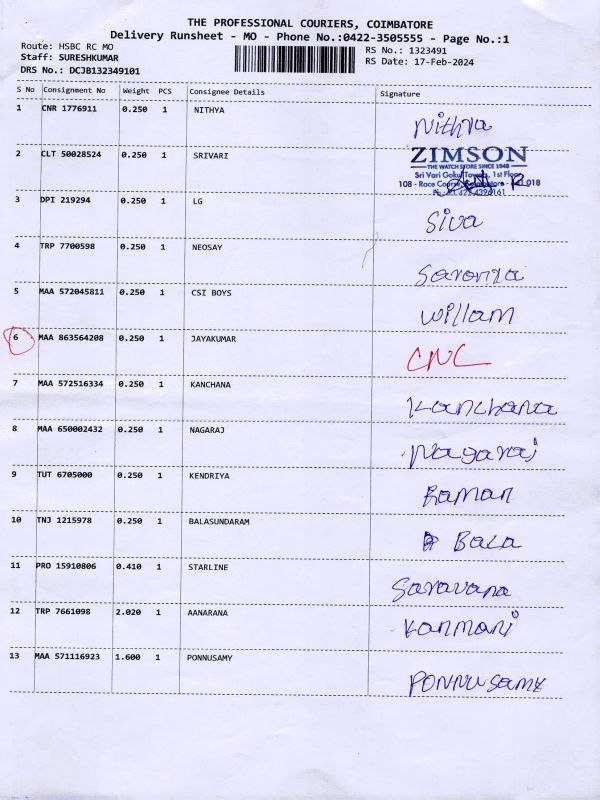 THE PROFESSIONAL COURIERS, COIMBATORE
Delivery Runsheet - MO - Phone No.:0422-3505555 - Page No.:1
Route: HSBC RC MO RS No.: 1323491
Staff: SURESHKUMAR RS Date: 17-Feb-2024
DRS No.: DCJB132349101
S No Consignment No Weight PCS Consignee Details Signature
1 CNR 1776911 0.250 1 NITHYA
Nithya
2 CLT 50028524 0.250 1 SRIVARI
ZIMSON
THE WATCH STORE SINCE 1948
Sri Vari Gokul Towers, 1st Floor
108 - Race Course, Coimbatore - 641 018
3 DPI 219294 0.250 1 LG
Siva
4 TRP 7700598 0.250 1 NEOSAY
Saranya
5 MAA 572045811 0.250 1 CSI BOYS
Willam
6 MAA 863564208 0.250 1 JAYAKUMAR
CNC
7 MAA 572516334 0.250 1 KANCHANA
Kanchana
8 MAA 650002432 0.250 1 NAGARAJ
Nagaraj
9 TUT 6705000 0.250 1 KENDRIYA
Raman
10 TNJ 1215978 0.250 1 BALASUNDARAM
Bala
11 PRO 15910806 0.410 1 STARLINE
Saravana
12 TRP 7661098 2.020 1 AANARANA
Kanmani
13 MAA 571116923 1.600 1 PONNUSAMY
Ponnusamy